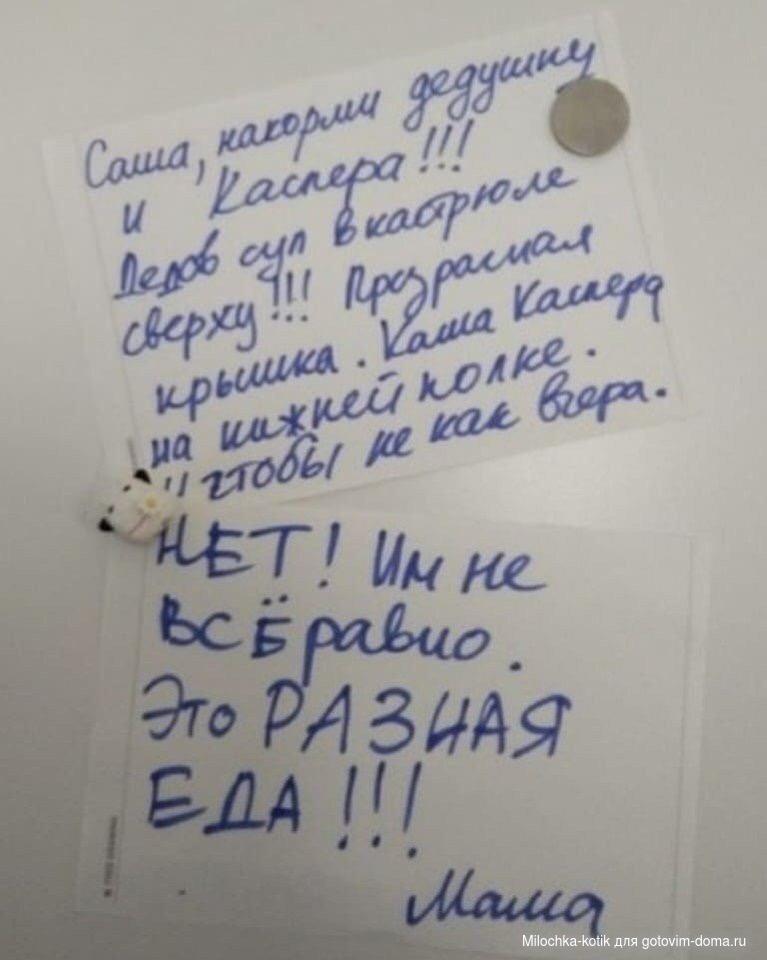 Саша, накорми дедушку
и Каспера!!!
Дедов суп в кастрюле
сверху!!! Прозрачная
крышка. Каша Каспера
на нижней полке.
И чтобы не как вчера.
НЕТ! Им не
ВСЁ равно.
Это РАЗНАЯ
ЕДА!!!
Мама
Milochka-kotik для gotovim-doma.ru